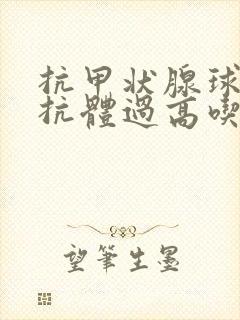 抗甲状腺球
抗體過高喫
望筆生墨